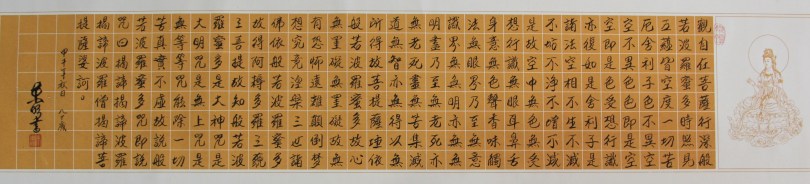 觀自在菩薩行深般
若波羅蜜多時照見
五蘊皆空度一切苦
厄舍利子色不異空
空不異色色即是空
空即是色受想行識
亦復如是舍利子是
諸法空相不生不滅
不垢不淨不增不減
是故空中無色無受
想行識無眼耳鼻舌
身意無色聲香味觸
法無眼界乃至無意
識界無無明亦無無
明盡乃至無老死亦
無老死盡無苦集滅
道無智亦無得以無
所得故菩提薩埵依
般若波羅蜜多故心
無罣礙無罣礙故無
有恐怖遠離顛倒夢
想究竟涅槃三世諸
佛依般若波羅蜜多
故得阿耨多羅三藐
三菩提故知般若波
羅蜜多是大神咒是
大明咒是無上咒是
無等等咒能除一切
苦真實不虛故說般
若波羅蜜多咒即說
咒曰揭諦揭諦波羅
揭諦波羅僧揭諦菩
提薩婆訶。